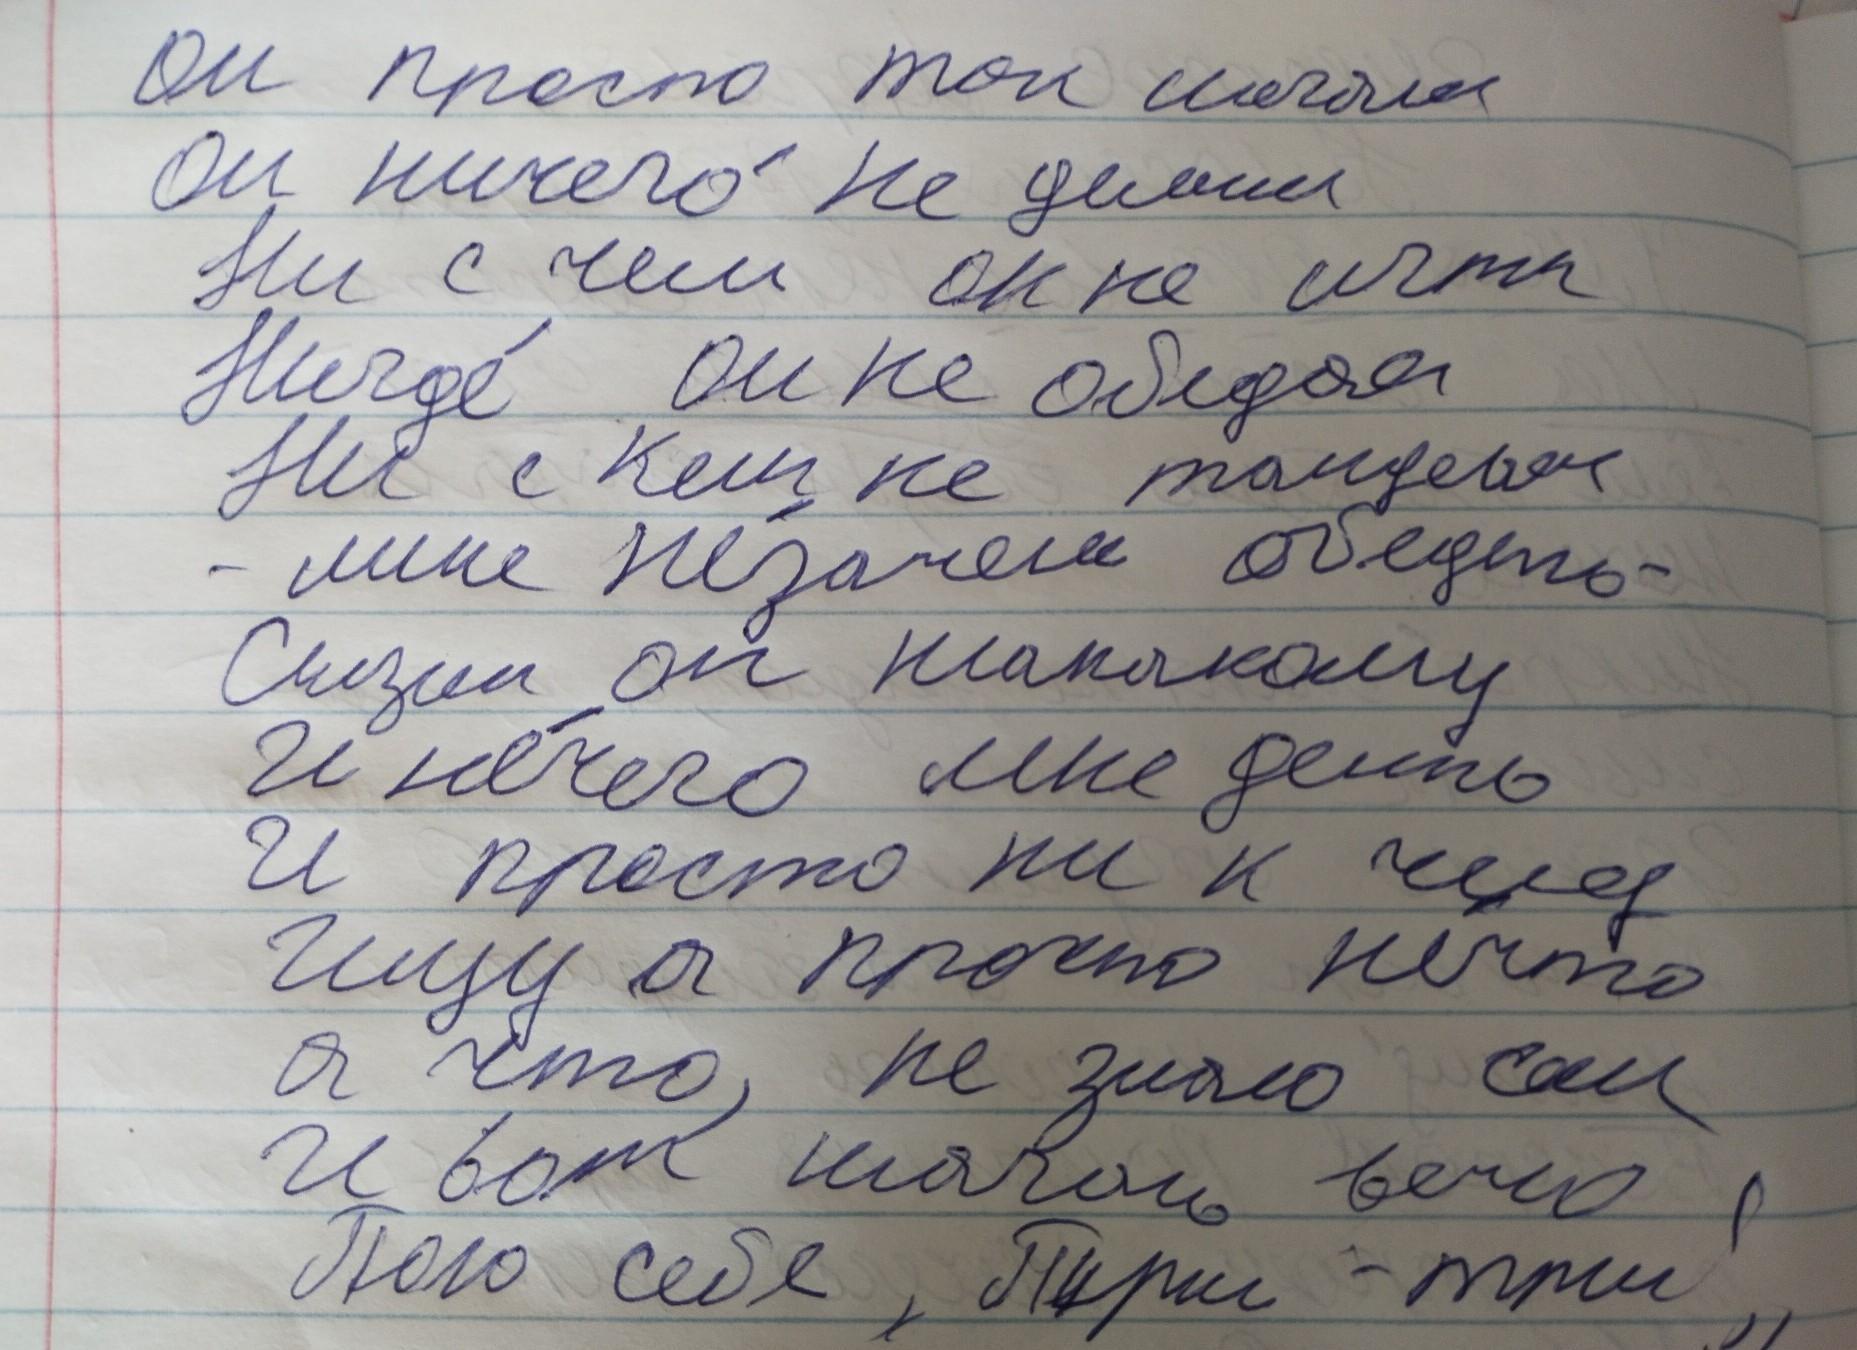 Он просто так шагал
Он ничего́ не делал
Ни с чем он не
Нигде́ он не обедал
Ни с кем не
- мне не́зачем обедать -
Сказал он
И не́чего мне деить
И просто ни к чему
Ищу я просто не́что
а что, не знаю сам
И вот шагаю вечно
Пою себе, Тири - три!"